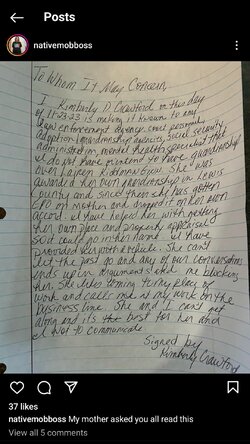 Posts
nativemobboss
To Whom It May Concern,
I Kimberly D Crawford on this day
of 11-23-23 is making it known to any
law enforcement agency, court personal,
adoption/guardianship agencies, social security
administration, mental health specialist that
I do not have
to have guardianship
over Lauren
She was
awarded her own guardianship in Lewis
County and since then she has gotten
EPO on mother and dropped it on her own
accord. I have helped her with getting
her own place and property appraisal
so it could go in her name. I have
provided her with a vehicle. She can't
let the past go and any of our conversations
ends up in argument and me blocking
her. She likes coming to my place of
work and calls me at my work on the
business line. She and I can't get
along and it's the best for her and
I not to communicate
Signed by
Kimberly Crawford
37 likes
nativemobboss My mother asked you all read this
View all 5 comments